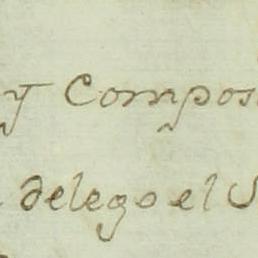 y Compos
delego el S